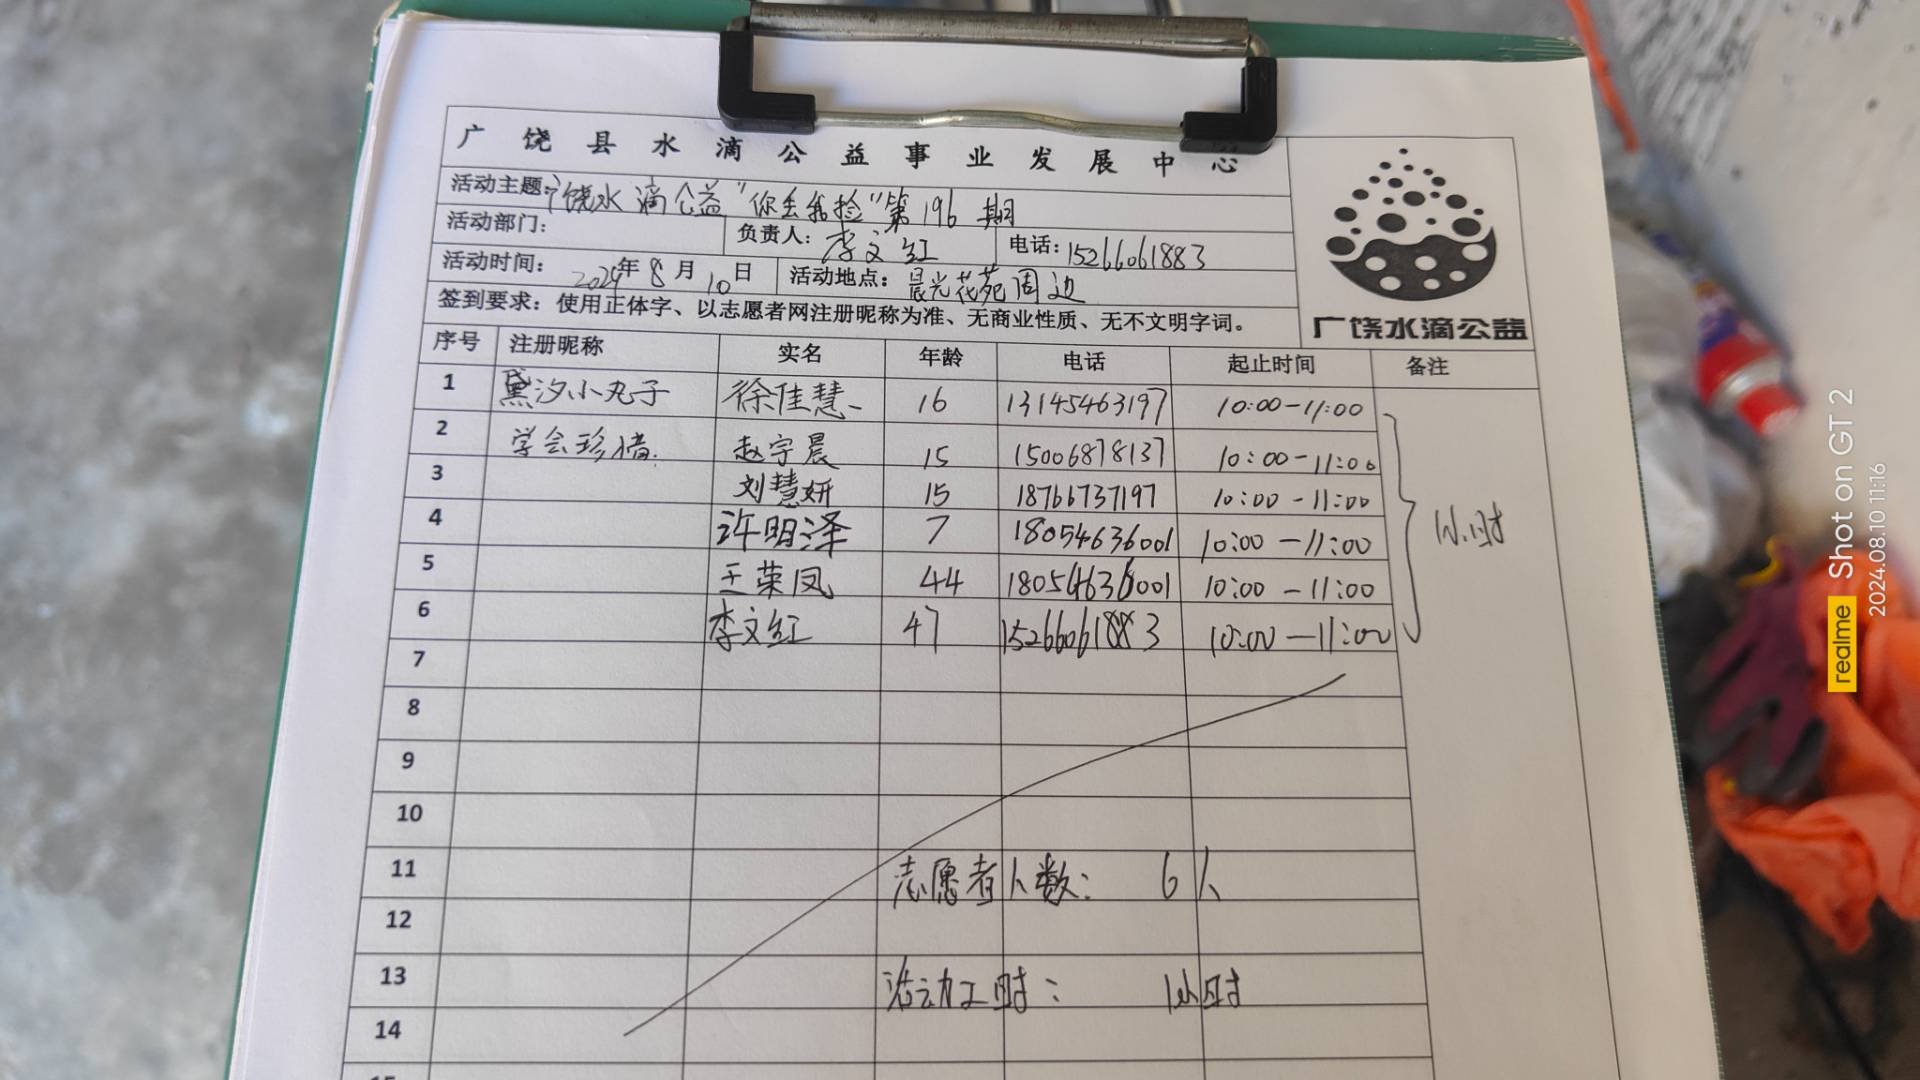 广饶县水滴公益事业发展中心
活动主题:广饶水滴公益"你丢我捡"第196期
活动部门:
负责人: 李文红
电话: 15266061883
活动时间: 2024年8月10日
活动地点: 晨光花苑周边
签到要求: 使用正体字、以志愿者网注册昵称为准、无商业性质、无不文明字词。
广饶水滴公益
序号 注册昵称 实名 年龄 电话 起止时间 备注
1 黛汐小丸子 徐佳慧 16 13145463197 10:00-11:00
2 学会珍惜. 赵宇晨 15 15006878137 10:00-11:00
3 刘慧妍 15 18766737197 10:00-11:00
4 许明泽 7 18054636001 10:00-11:00
1小时
5 王荣凤 44 18054636001 10:00-11:00
6 李文红 47 15266061883 10:00-11:00
7
8
9
10
11 志愿者人数: 6人
12
13 活动工时: 1小时
14
15
realme Shot on GT 2
2024.08.10 11:16